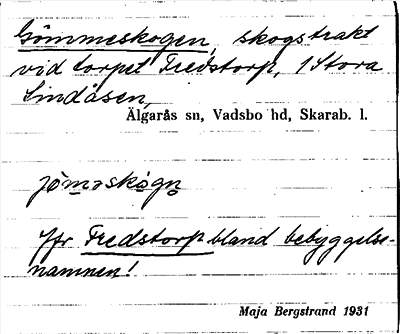 Gömmeskogen, skogstrakt
vid torpet Fredstorp, 1 Stora
Lindåsen,
Älgarås sn, Vadsbo hd, Skarab. l.
jö̀məskògn̥
Jfr Fredstorp bland bebyggelse-
namnen!
Maja Bergstrand 1931